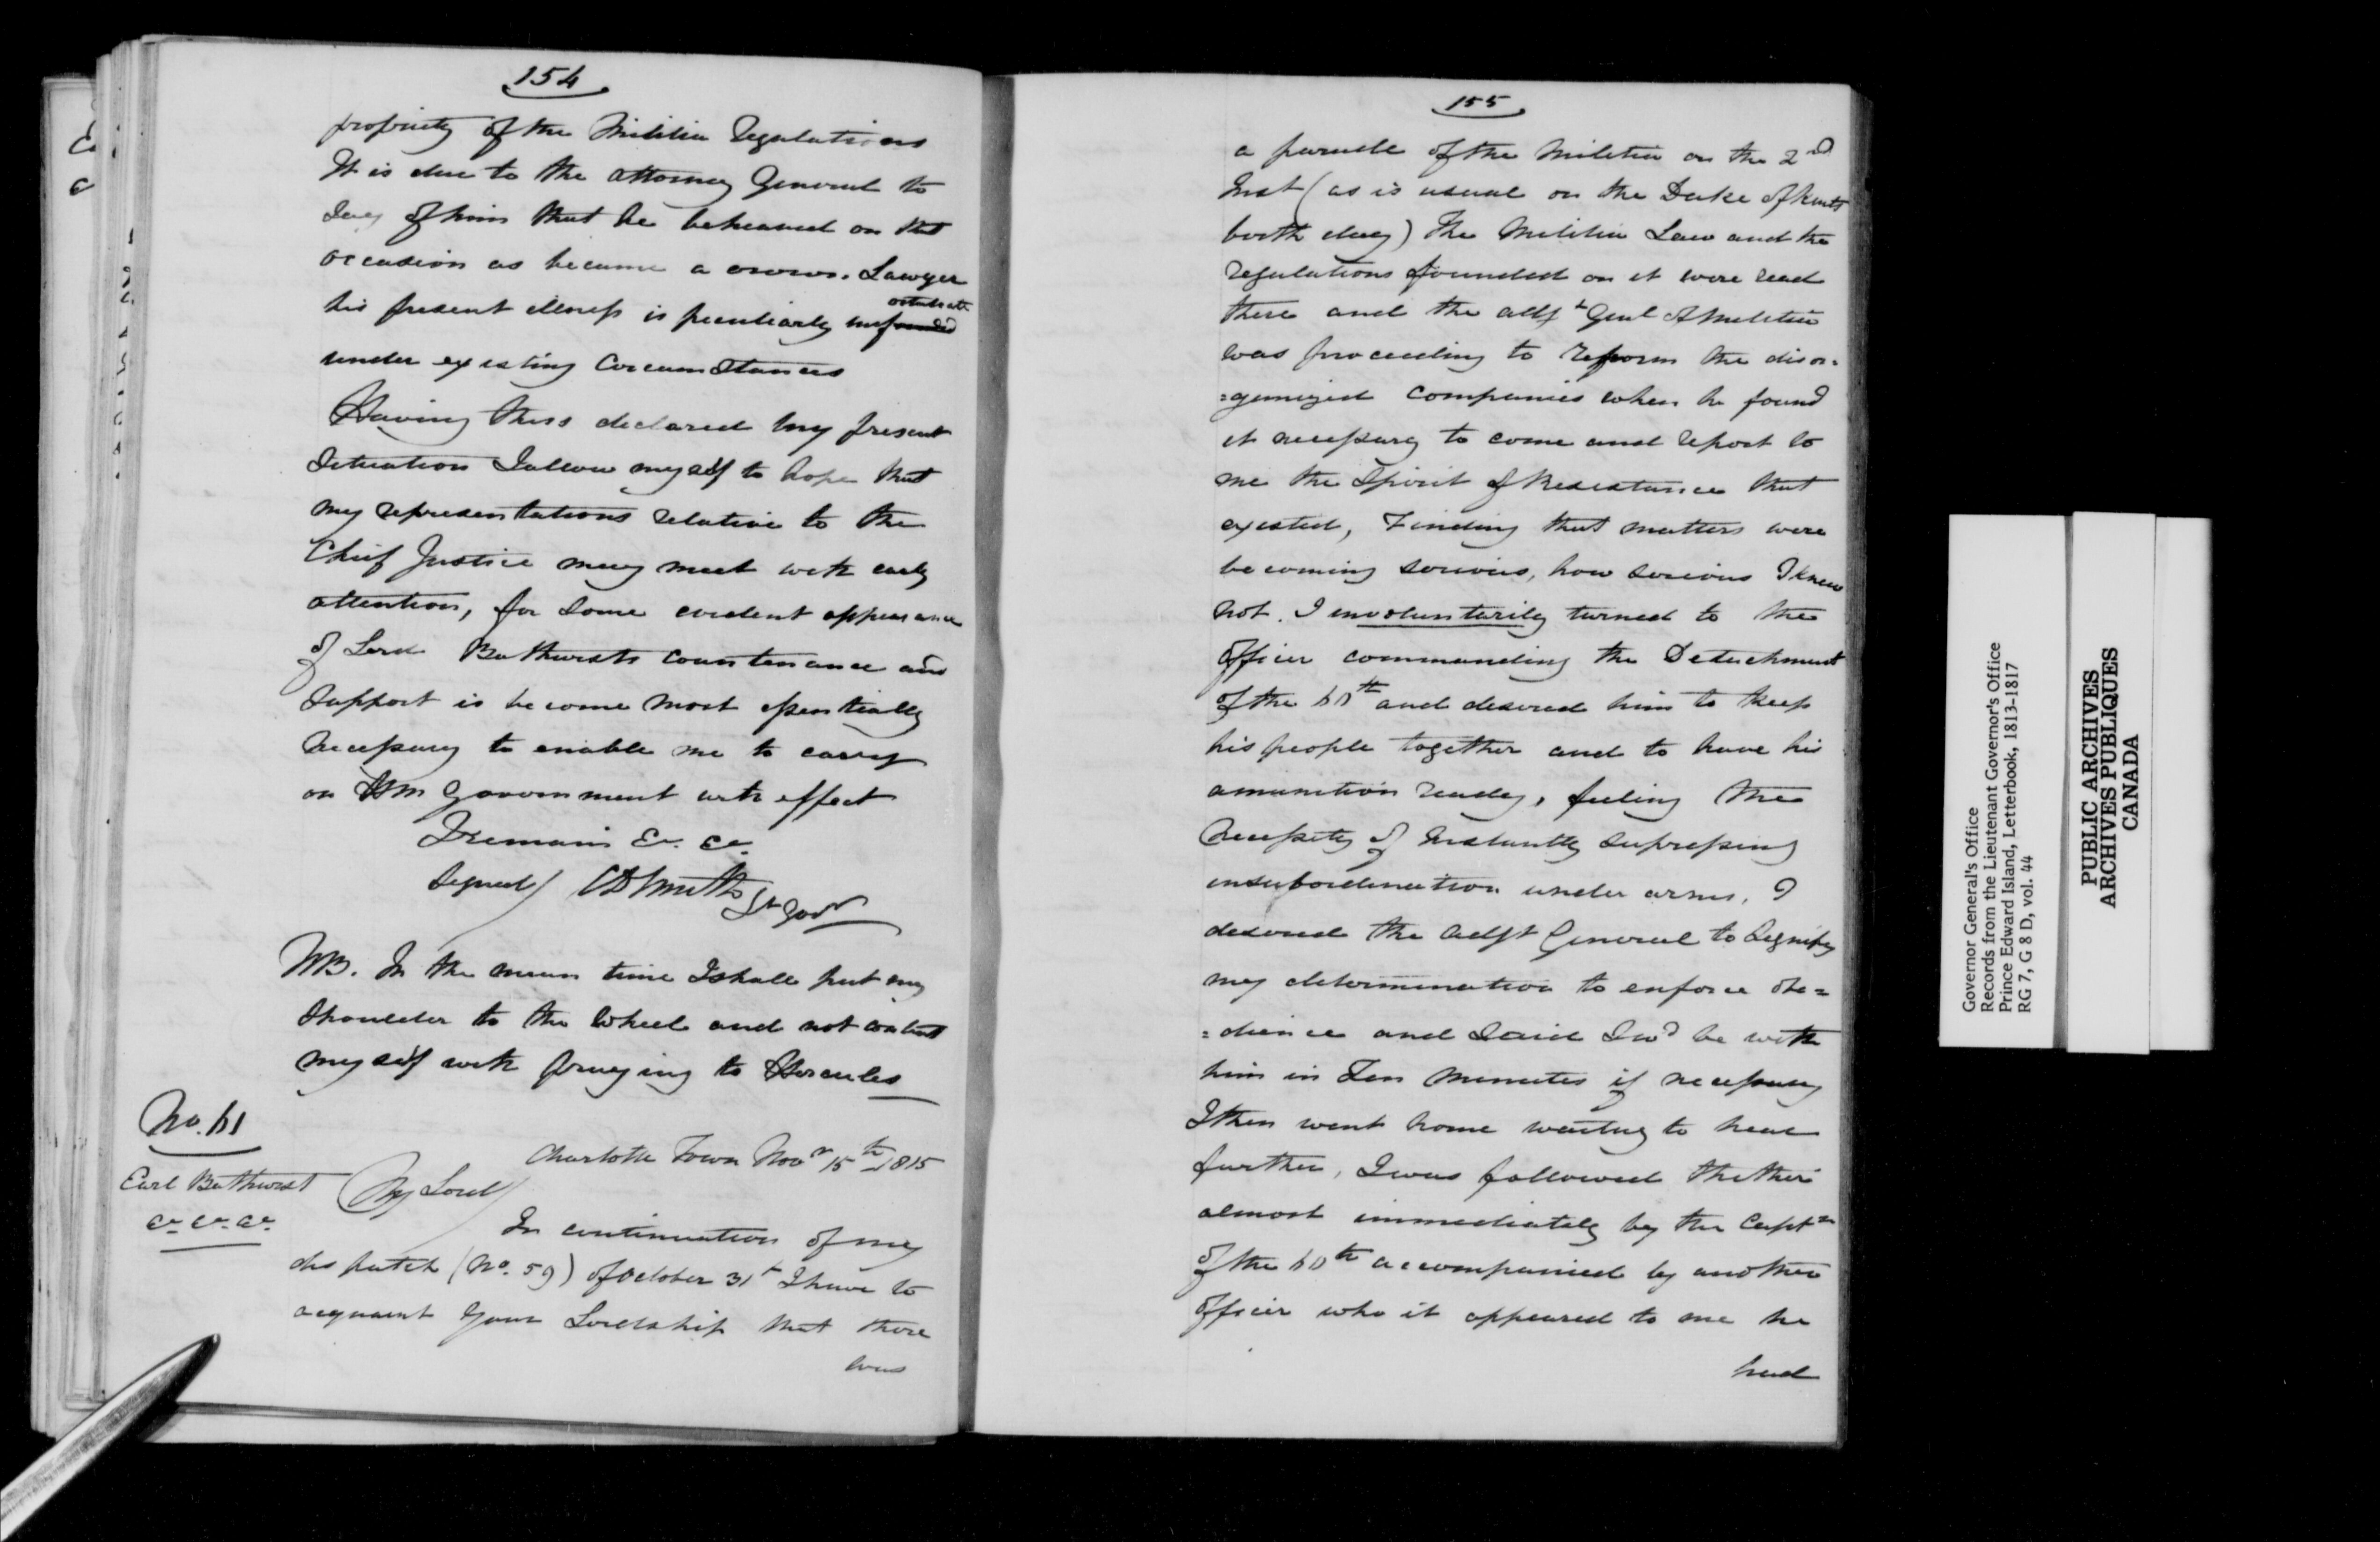 154
propriety of the Militia Regulations
It is due to the Attorney General to
Say of him that he behaved on that
occasion as became a crown Lawyer
his present illness is peculiarly unfortunate
under existing Circumstances
Having thus declared my present
Situation I allow myself to hope that
my representations relative to the
Chief Justice may meet with early
attention, for Some evident appearance
of Lord Bathursts Countenance and
Support is become most essentially
necessary to enable me to carry
on this Government with effect
I remain &c. &c.
Signed/ CD Smith Lt Govr
NB. In the mean time I shall put my
Shoulder to the Wheel and not content
myself with praying to Hercules
No. 61
Charlotte Town Novr 15th 1815
Earl Bathurst
&c &c &c
My Lord/
In continuation of my
dispatch (No. 59) of October 31st I have to
acquaint your Lordship that there
was
155
a parade of the Militia on the 2nd
Inst (as is usual on the Duke of Kents
birth day) The Militia Law and the
regulations founded on it were read
there and the adjt Genl of Militia
was proceeding to reform the disor=
=ganized Companies when he found
it necessary to come and report to
me the Spirit of Resistance that
existed, Finding that matters were
becoming serious, how serious I knew
not. I involuntarily turned to the
Officer commanding the Detachment
of the 60th and desired him to keep
his people together and to have his
amunition ready, feeling the
necessity of Instantly Supressing
insubordination under arms, I
desired the Adjt General to Signify
my determination to enforce obe=
=dience and Said I wd be with
him in Ten Minutes if necessary
I then went home waiting to hear
further, I was followed thither
almost immediately by the Captn
of the 60th accompanied by another
Officer who it appeared to me he
had
Governor General's Office
Records from the Lieutenant Governor's Office
Prince Edward Island, Letterbook, 1813-1817
RG 7, G 8 D, vol. 44
PUBLIC ARCHIVES
ARCHIVES PUBLIQUES
CANADA